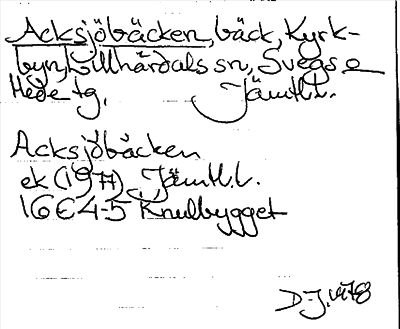 Acksjöbäcken, bäck, Kyrk-
byn, Lillhärdals sn, Svegs o
Hede tg, Jämtl.l.
Acksjöbäcken
ek (1977), Jämtl.l.
16E 4-5 Knulbygget
D-J. 1978